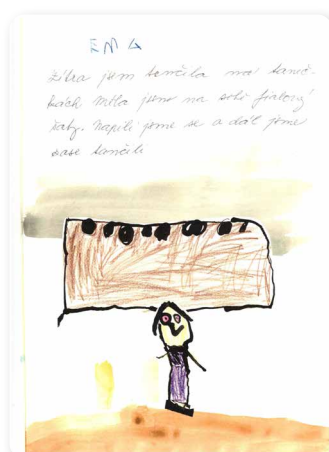 EMA
Zítra jsem tančila na taneč-
kách měla jsem na sobě fialový
šaty. Napili jsme se a dál jsme
zase tančili